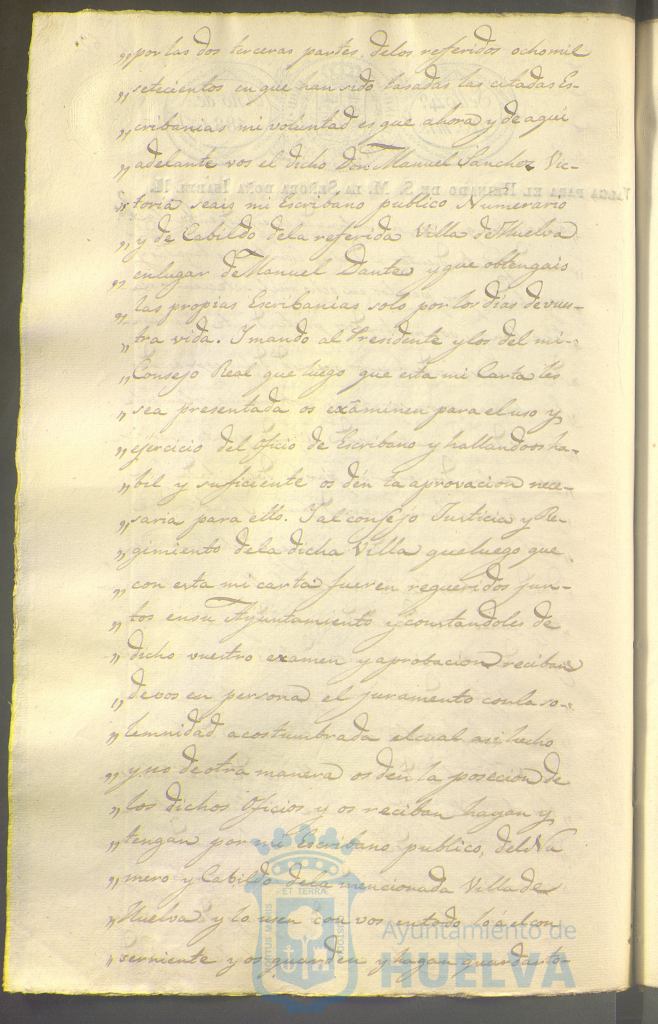 „ por las dos terceras partes, delos referidos ochomil
„ setecientos en que han sido tasadas las citadas Es-
„ cribanias mi voluntad es que ahora y de aqui
„ adelante vos el dicho Don Manuel Sanchez Vic-
„ toria seais mi Escribano publico Numerario
„ y de Cabildo dela referida Villa de Huelva
„ enlugar de Manuel Dante y que obtengais
„ las propias Escribanias solo por los dias de vues-
„ tra vida. Y mando al Presidente y los del mi-
„ Consejo Real que luego que esta mi Carta les
„ sea presentada os exâminen para el uso y
„ ejercicio del Oficio de Escribano y hallandoos ha-
„ bil y suficiente os dén la aprovacion nece-
„ saria para ello. Y al consejo Justicia y Re-
„ gimiento dela dicha Villa que luego que
„ con esta mi carta fueren requeridos jun-
„ tos ensu Ayuntamiento y constandoles de
„ dicho vuestro examen y aprobacion reciban
„ de vos en persona el juramento conla so-
„ lemnidad acostumbrada el cual asi hecho
„ y no de otra manera os dén la posecion de
„ los dichos Oficios y os reciban hayan y
„ tengan por mi Escribano publico, del Nu
„ mero y Cabildo dela mencionada Villa de
„ Huelva y lo usen con vos entodo lo a el con
„ serniente y os guarden y hagan guardar to-
VALGA PARA EL REINADO DE S. M. LA SEÑORA DOÑA ISABEL II.
ET TERRÆ
Ayuntamiento de
HUELVA